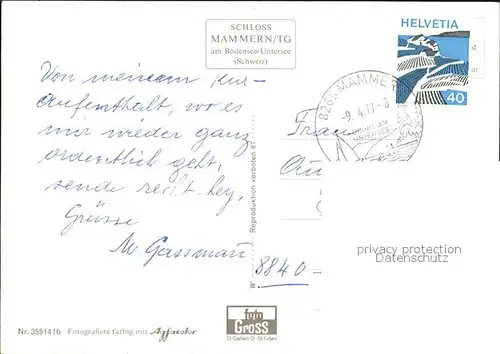 SCHLOSS
MAMMERN/TG
am Bodensee-Untersee
(Schweiz)
HELVETIA
40
8265 MAMMER
-9.4.77-8
KURORT AM
UNTERSEE
Von meinem Kur-
aufenthalt, wo es
mir wieder ganz
ordentlich geht,
sende recht hey.
Grüsse
M Gassmann
Frau
8840-
Reproduktion verboten 87
W
privacy protection
Datenschutz
foto
Gross
St.Gallen O St.Fiden
Nr. 355141b Fotografiere farbig mit Agfacolor